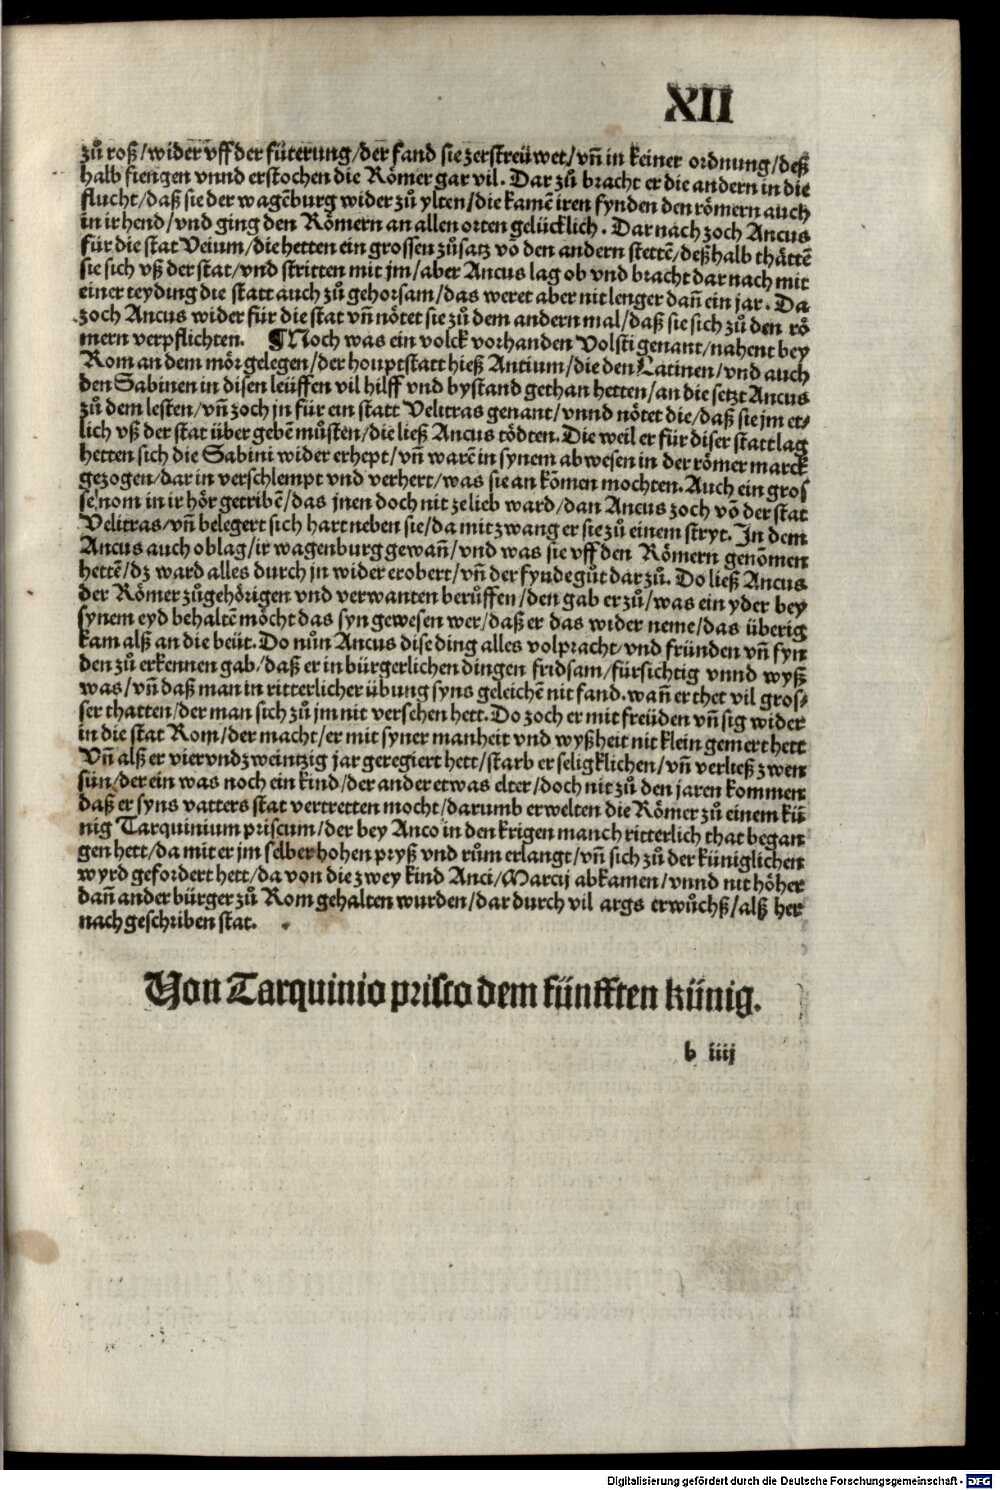 XII
zů roß/wider vff der fůterung/der fand sie zerströwet/vn̄ in keiner ordnung/deß
halb fiengen vnnd erstochen die Römer gar vil. Dar zů bracht er die andern in die
flucht/daß sie der wagēburg wider zů ylten/die kamē iren fynden den römern auch
in ir hend/vnd ging den Römern an allen orten gelücklich. Dar nach zoch Ancus
für die stat Veium/die hetten ein grossen zůsatz vō den andern stettē/deßhalb thättē
sie sich vß der stat/vnd stritten mit jm/aber Ancus lag ob vnd bracht dar nach mit
einer teyding die statt auch zů gehorsam/das weret aber nit lenger dañ ein jar. Da
zoch Ancus wider für die stat vn̄ nötet sie zů dem andern mal/daß sie sich zů den rö
mern verpflichten. ¶Noch was ein volck vorhanden Volsci genant/nahent bey
Rom an dem mör gelegen/der houptstatt hieß Antium/die den Latinen/vnd auch
den Sabinen in disen leüffen vil hilff vnd bystand gethan hetten/an die setzt Ancus
zů dem lesten/vn̄ zoch jn für ein statt Velitras genant/vnnd nötet die/daß sie jm et⸗
lich vß der stat über gebē můsten/die ließ Ancus tödten. Die weil er für diser statt lag
hetten sich die Sabini wider erhept/vn̄ warē in synem abwesen in der römer marck
gezogen/dar in verschlempt vnd verhert/was sie an kōmen mochten. Auch ein gros
se nom in ir hör getribē/das jnen doch nit ze lieb ward/dan Ancus zoch vō der stat
Velitras/vn̄ belegert sich hart neben sie/da mit zwang er sie zů einem stryt. In dem
Ancus auch oblag/ir wagenburg gewañ/vnd was sie vff den Römern genōmen
hettē/dz ward alles durch jn wider erobert/vn̄ der fynde gůt dar zů. Do ließ Ancus
der Römer zůgehörigen vnd verwanten berůffen/den gab er zů/was ein yder bey
synem eyd behaltē möcht das syn gewesen wer/daß er das wider neme/das überig
kam alß an die beüt. Do nůn Ancus dise ding alles volpracht/vnd fründen vn̄ fyn
den zů erkennen gab/daß er in bürgerlichen dingen fridsam/fürsichtig vnnd wyß
was/vn̄ daß man in ritterlicher übung syns geleichē nit fand. wañ er thet vil gros⸗
ser thatten/der man sich zů jm nit versehen hett. Do zoch er mit freüden vn̄ sig wider
in die stat Rom/der macht/er mit syner manheit vnd wyßheit nit klein gemert hett
Vn̄ alß er vier vnd zweintzig jar geregiert hett/starb er seligklichen/vn̄ verließ zwen
sün/der ein was noch ein kind/der ander etwas elter/doch nit zů den jaren kommen
daß er syns vatters stat vertretten mocht/darumb erwelten die Römer zů einem kü
nig Tarquinium priscum/der bey Anco in den krigen manch ritterlich that began
gen hett/da mit er jm selber hohen pryß vnd rům erlangt/vn̄ sich zů der küniglichen
wyrd gefordert hett/da von die zwey kind Anci/Marcij abkamen/vnnd nit höher
dañ ander bürger zů Rom gehalten wurden/dar durch vil args erwůchß/alß her
nach geschriben stat.
Von Tarquinio prisco dem fünfften künig.
b iiij
Digitalisierung gefördert durch die Deutsche Forschungsgemeinschaft - DFG